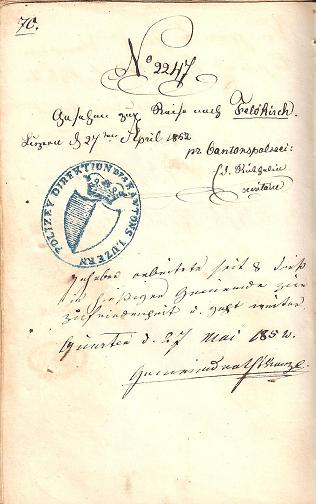 70.
No 2247
Gesehen zur Reise nach Feldkirch.
Luzern d 27ten April 1852
pr Cantonspolizei:
POLIZEY DIREKTION DES KANTONS LUZERN
Inhaber arbeitete seit 8 
in hiesiger Gemeinde zur
Zufriedenheit u. geht weiter
d. 27 Mai 1852.